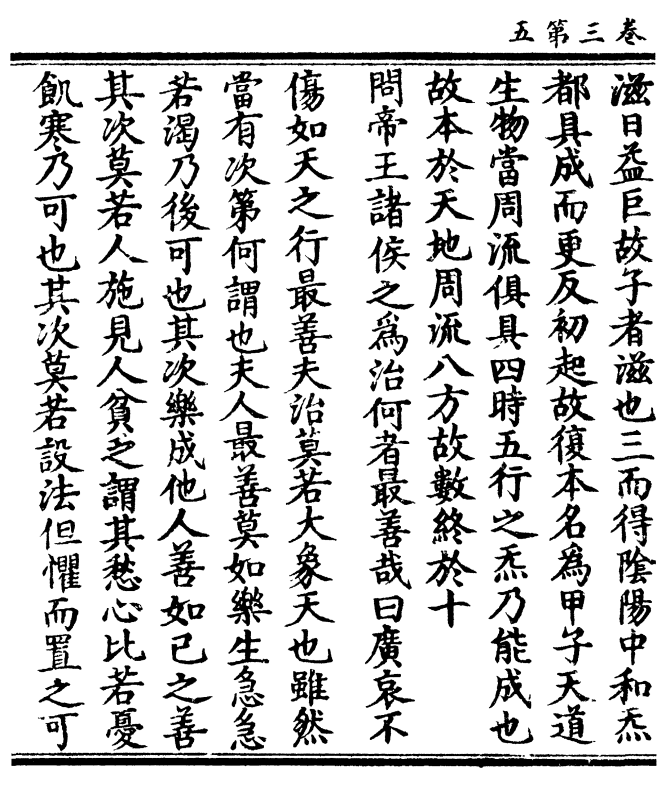 卷三第五
滋日益巨故子者滋也三而得陰陽中和炁
都具成而更反初起故復本名爲甲子天道
生物當周流俱具四時五行之炁乃能成也
故本於天地周流八方故數終於十
問帝王諸侯之爲治何者最善哉曰廣哀不
傷如天之行最善夫治莫若大象天也雖然
當有次第何謂也夫人最善莫如樂生急急
若渴乃後可也其次樂成他人善如己之善
其次莫若人施見人貧乏謂其愁心比若憂
飢寒乃可也其次莫若設法但懼而置之可